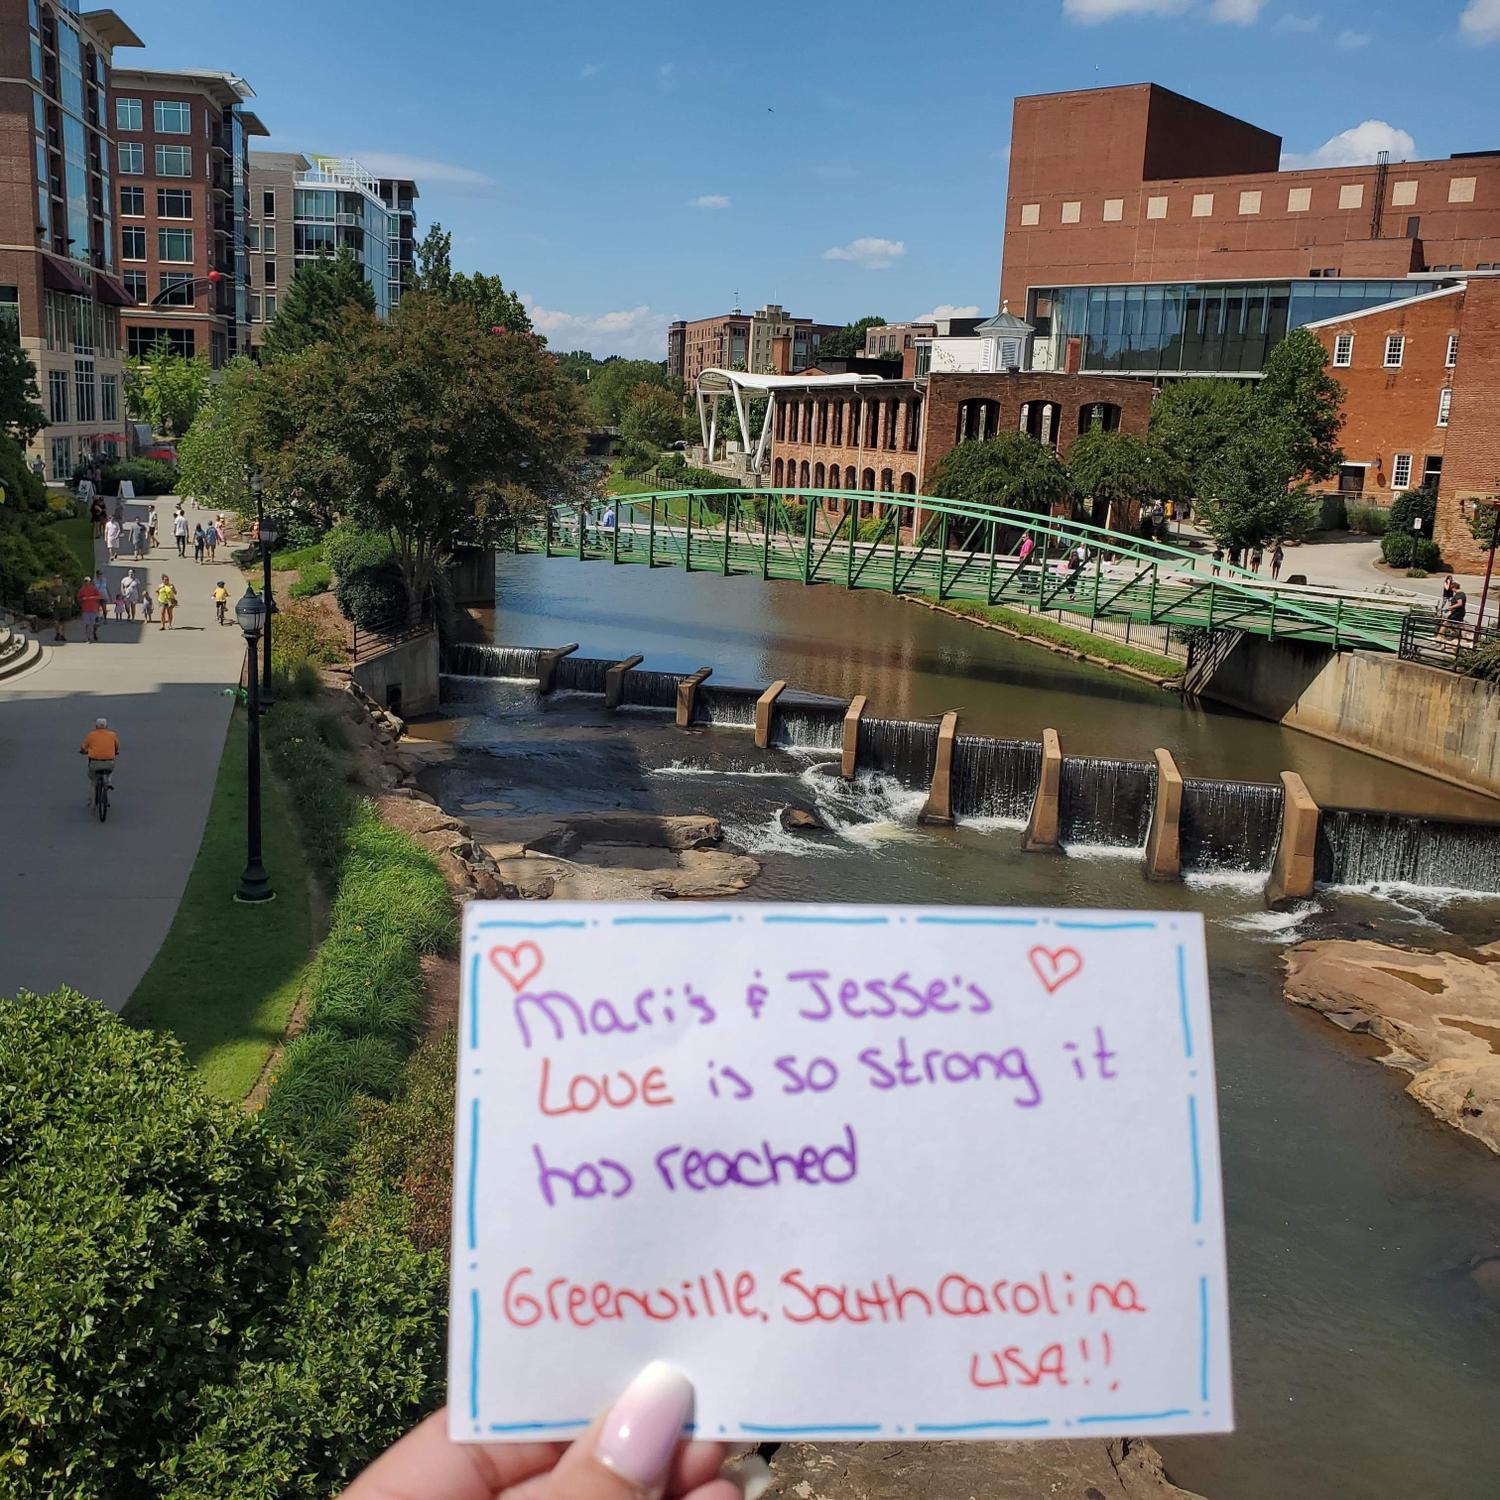 Mari's & Jesse's
Love is so strong it
has reached
Greenville, South Carolina
USA!!